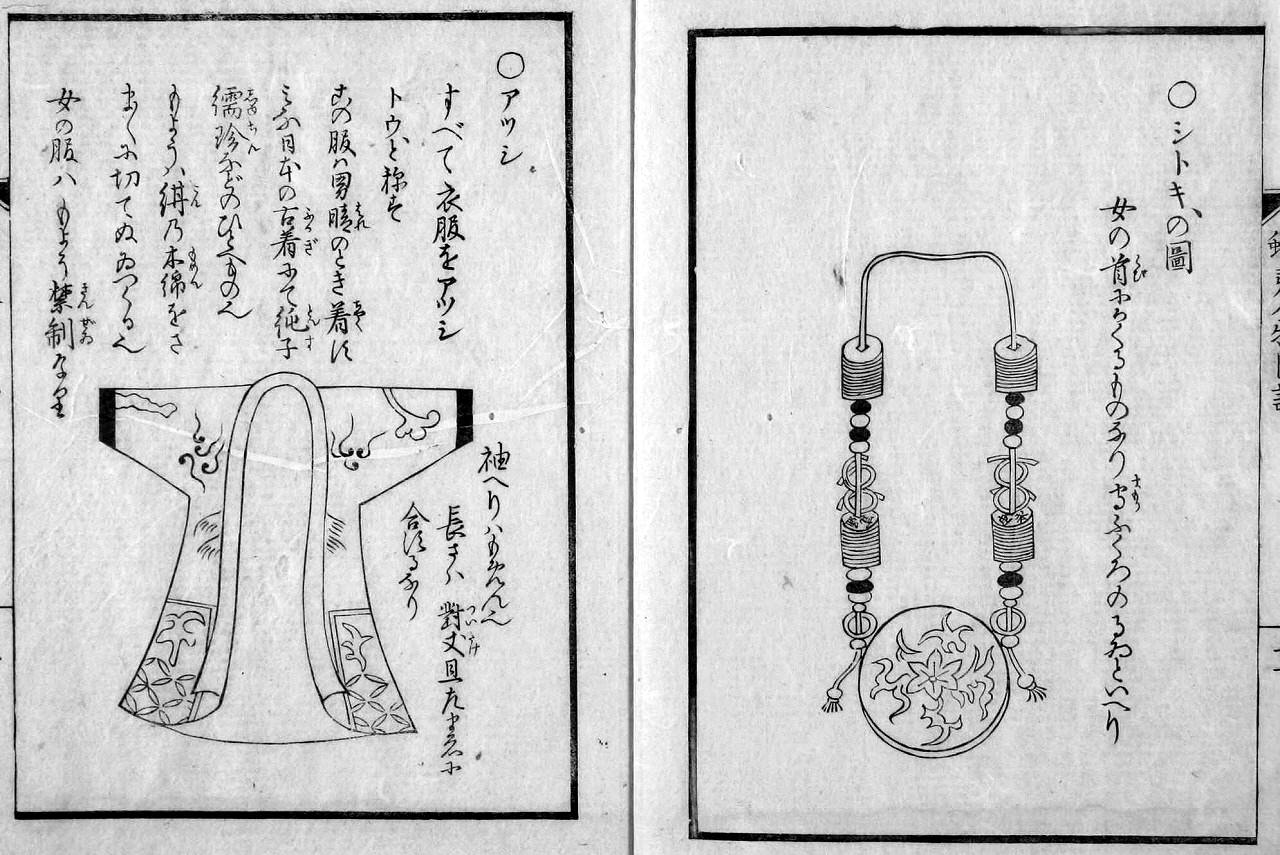 ○シトキの圖
女の首にかくるものなり守ふくろのるゐといへり
○アツシ
すべて衣服をアツシ
トウと称す
この服ハ男晴のとき着す
ミな日本の古着にて純子
繻珍などのひとへもの也
もようハ紺乃木綿をさ
まくに切てぬゐつくる也
女の服ハもよう禁制なり
袖へりハもめん也
長さハ對丈且左まえに
合するなり